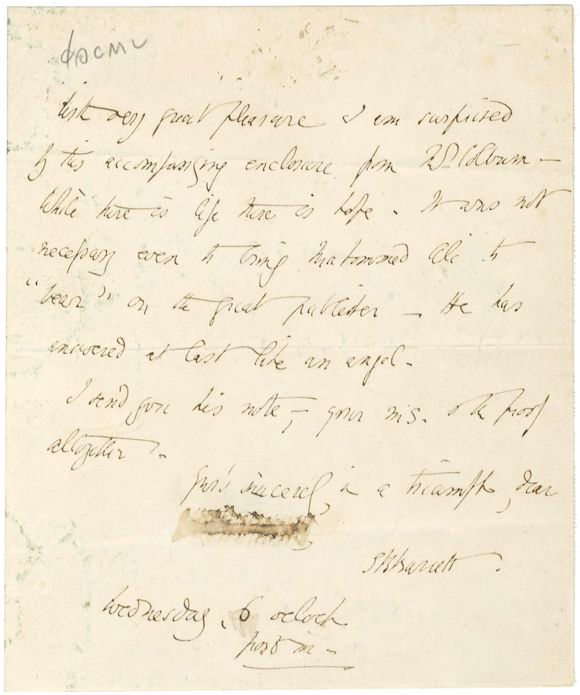 With very great pleasure I am surprised
by this accompanying enclosure from Mr. Colburn –
While there is life there is hope. It was not
necessary even to bring Mahommed Ali to
"bear" on the great publisher – He has
answered at last like an angel.
I send you his note, – your ms. & the proof
altogether.
Your's sincerely, in a triumph, dear
EBBarrett.
Wednesday, 6 oclock
post in –